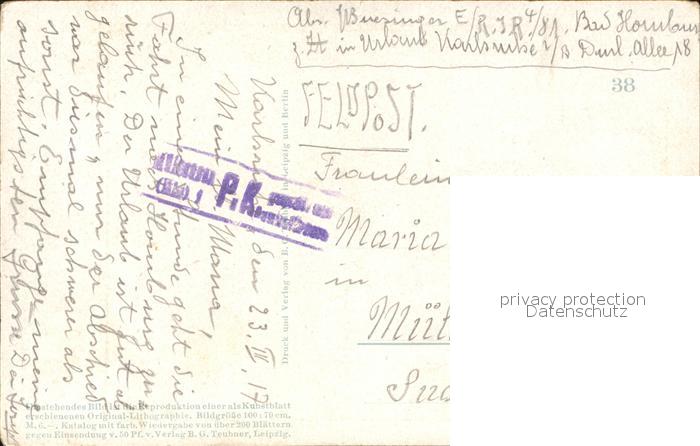 Abs. Buesinger E/R.I.R 4/81. Bad Homburg
z. Zt in Urlaub Karlsruhe i/B Durl. Allee 18
38
FELDPOST.
Fräulein
Maria
in
Müt
privacy protection
Datenschutz
P.K.
Karlsruhe den 23. IV. 17
Mein l. Maria,
In einer Stunde geht die
Fahrt nach Homburg zu
rück. Der Urlaub ist gut
gelaufen, nur der Abschied
war diesmal schwerer als
sonst. Empfange meine
aufrichtigsten Grüsse
Druck und Verlag von B. G. in Leipzig und Berlin
stehendes Bild ist die Reproduktion einer als Kunstblatt
erschienenen Original-Lithographie. Bildgröße 100:70 cm.
M. 6.–. Katalog mit farb. Wiedergabe von über 200 Blättern
gegen Einsendung v. 50 Pf. v. Verlag B. G. Teubner, Leipzig.